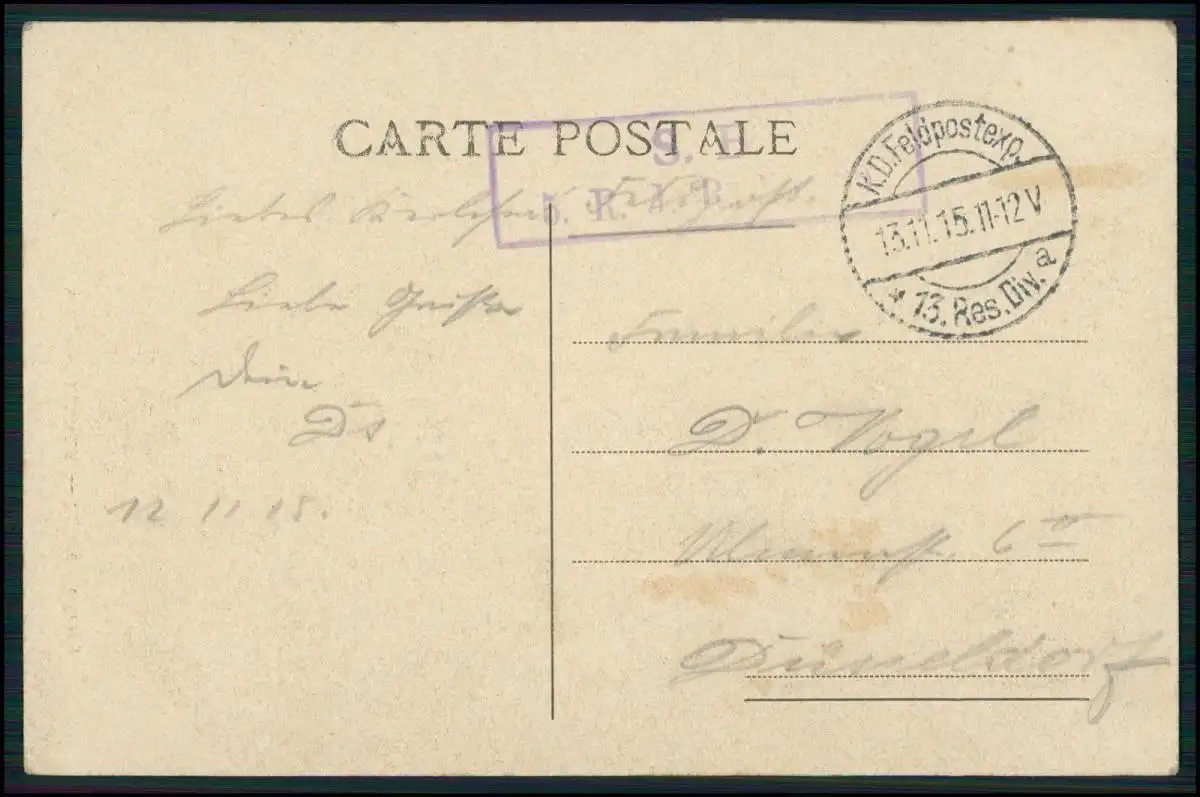 CARTE POSTALE
S. B.
R.
K.D. Feldpostexp.
13.11.15.11-12V
* 13. Res. Div. a
Liebes
Feldpost.
Liebe Grüße
Dein
Ds
12 11 15.
Familie
D. Vogel
6 II
Düsseldorf